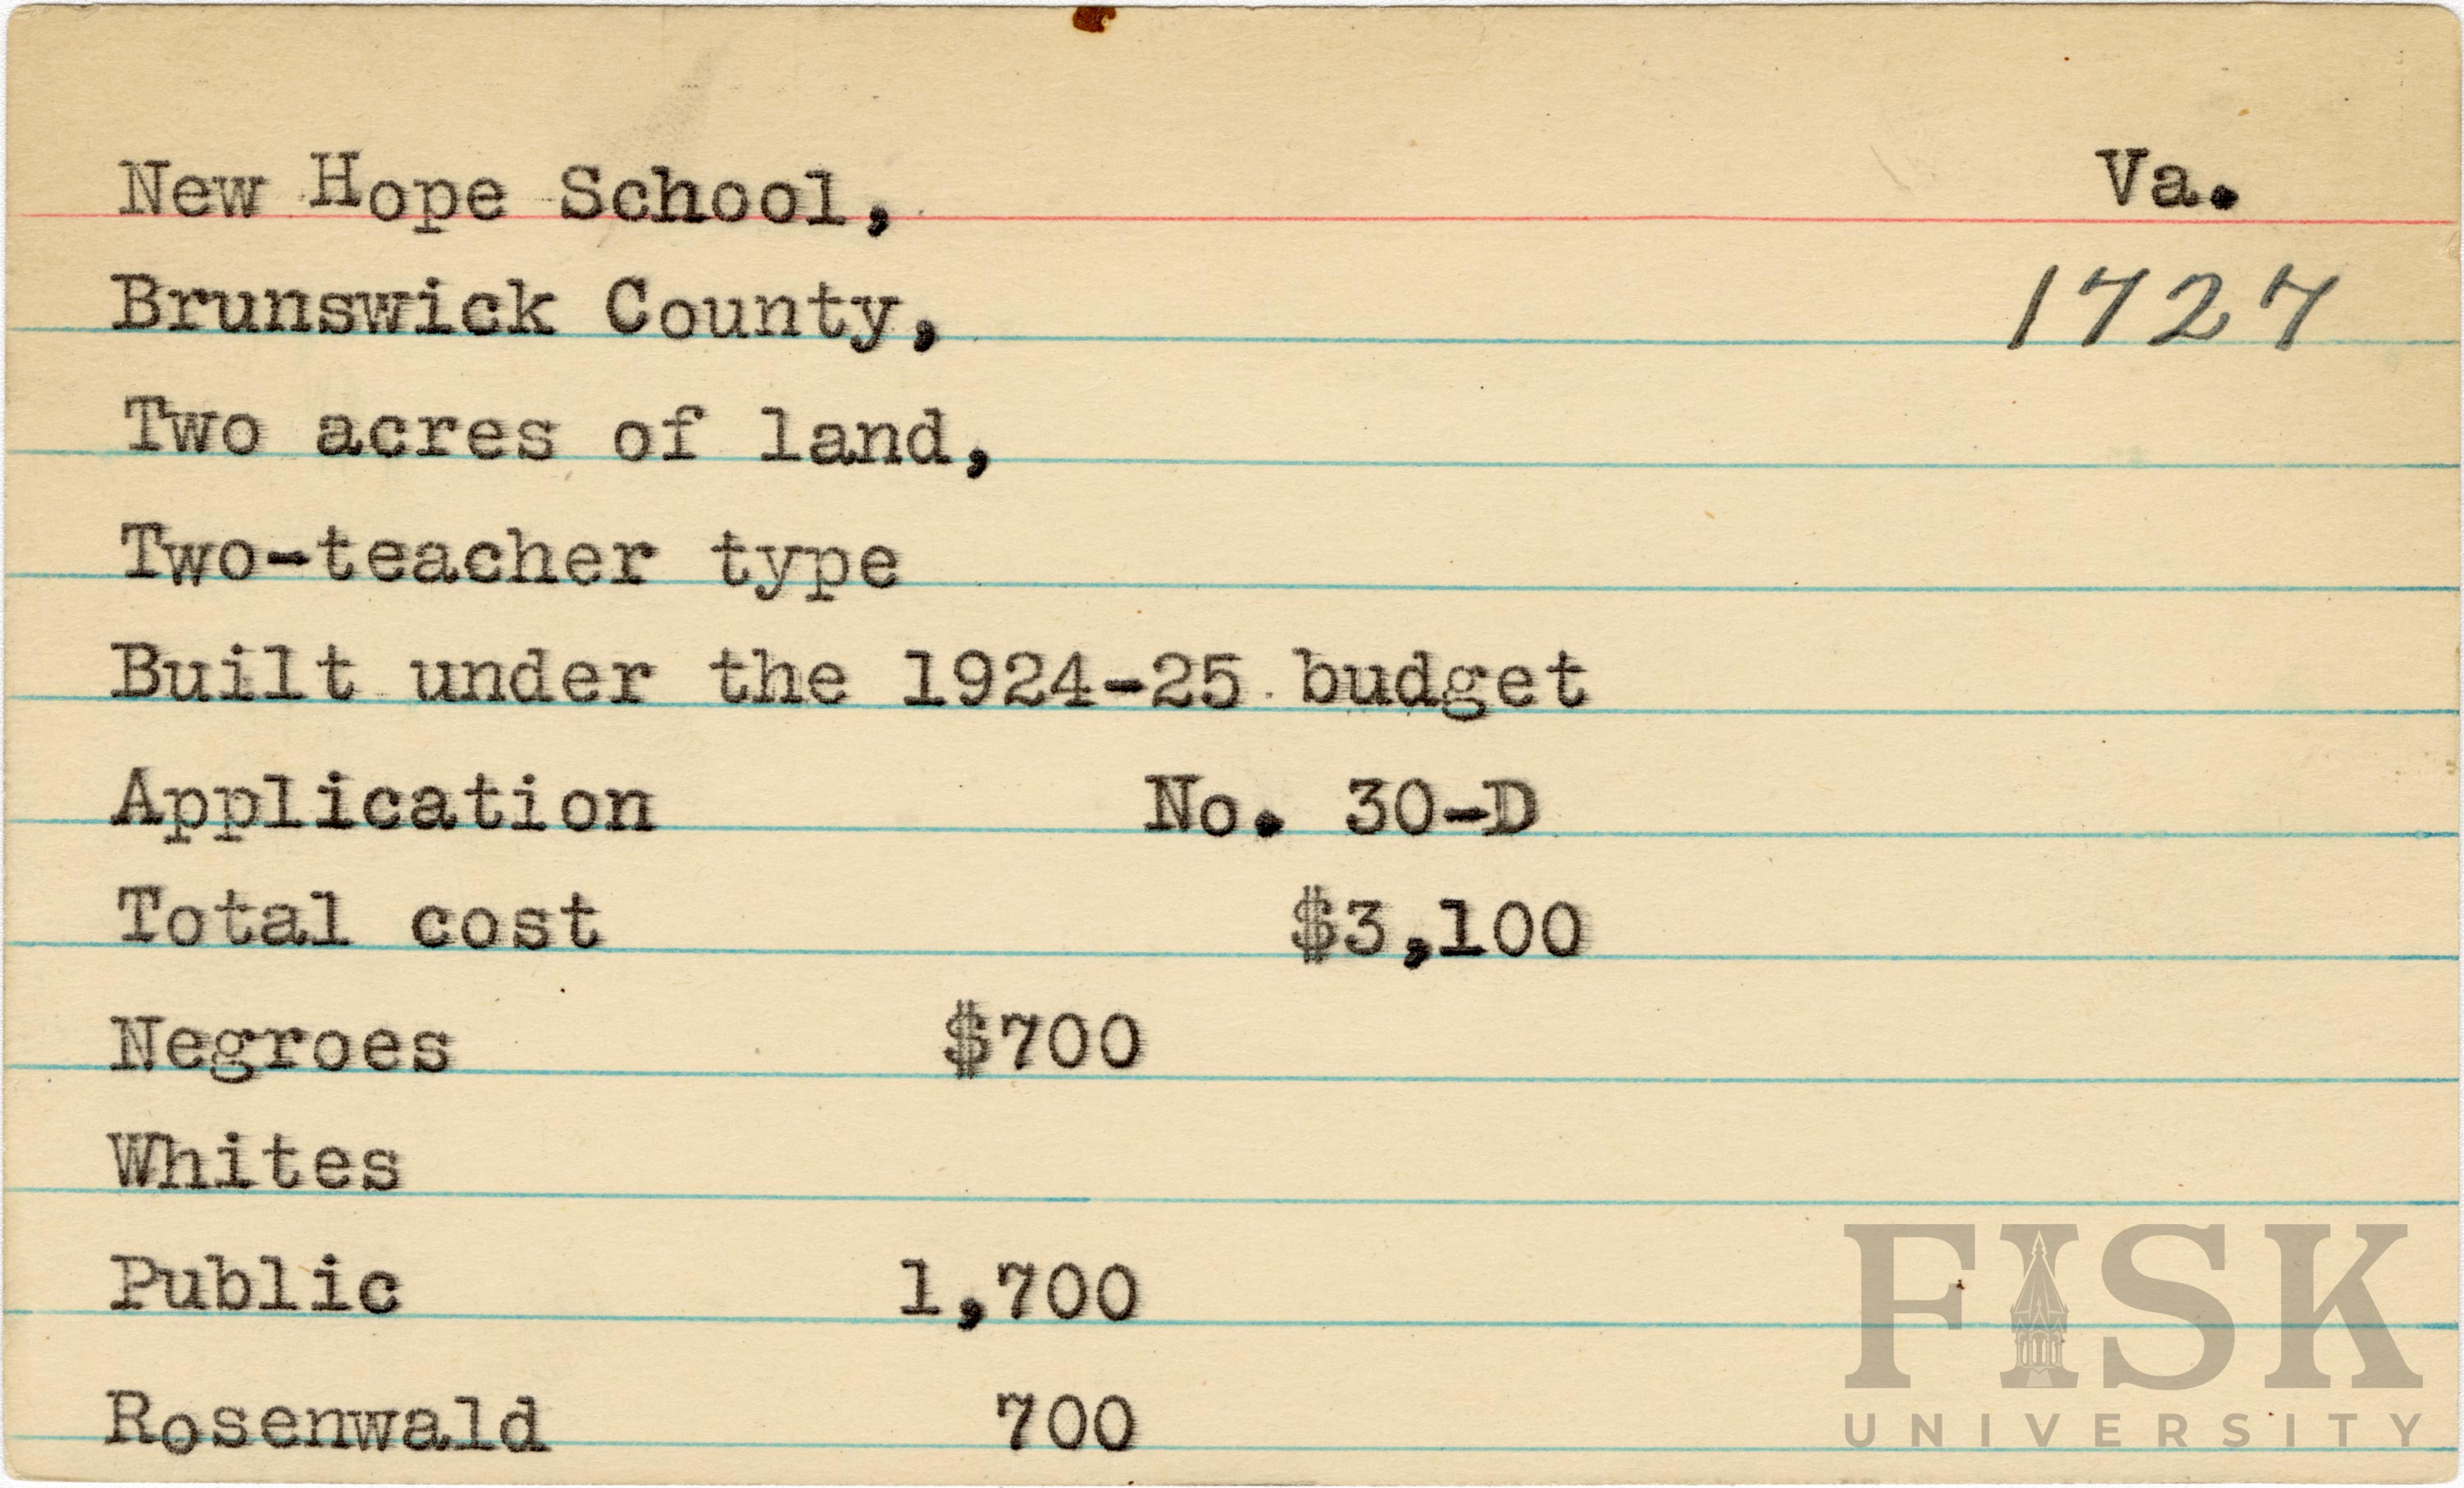 New Hope School, Va.
Brunswick County, 1727
Two acres of land,
Two-teacher type
Built under the 1924-25 budget
Application No. 30-D
Total cost $3,100
Negroes $700
Whites
Public 1,700
Rosenwald 700
FISK
UNIVERSITY